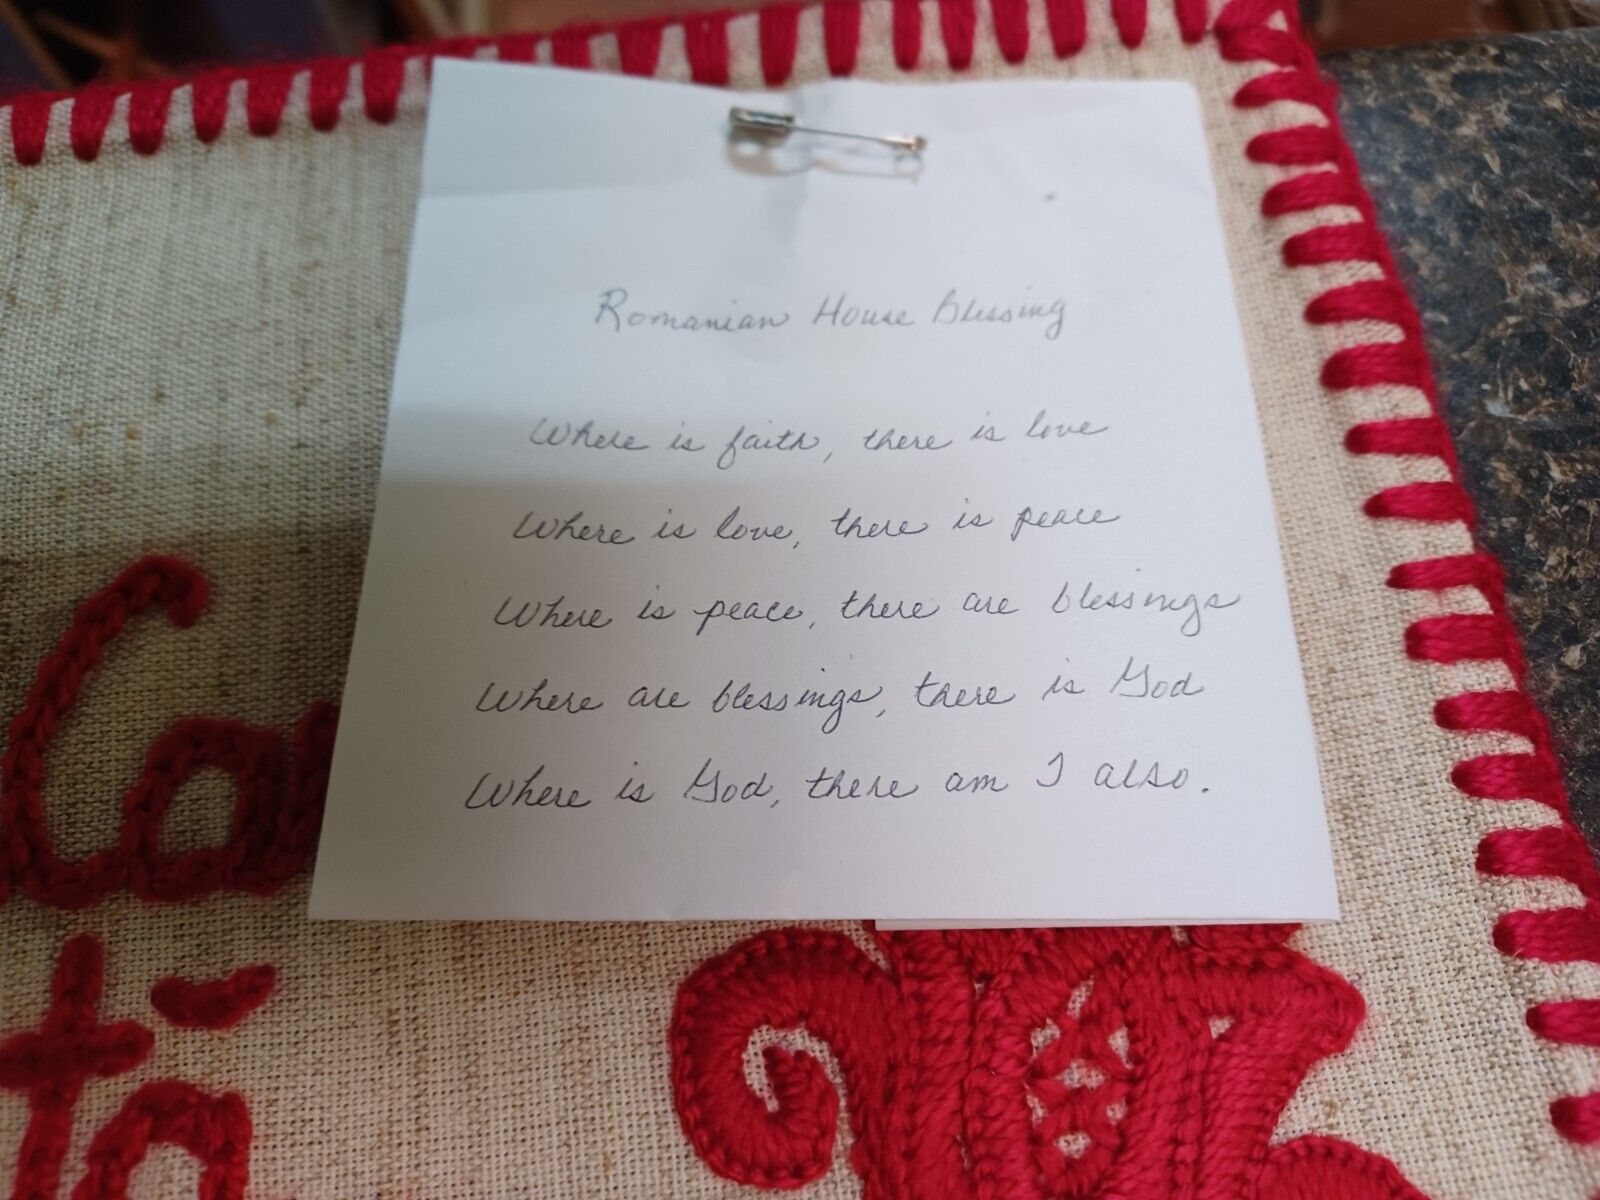 Romanian House Blessing
Where is faith, there is love
Where is love, there is peace
Where is peace, there are blessings
Where are blessings, there is God
Where is God, there am I also.